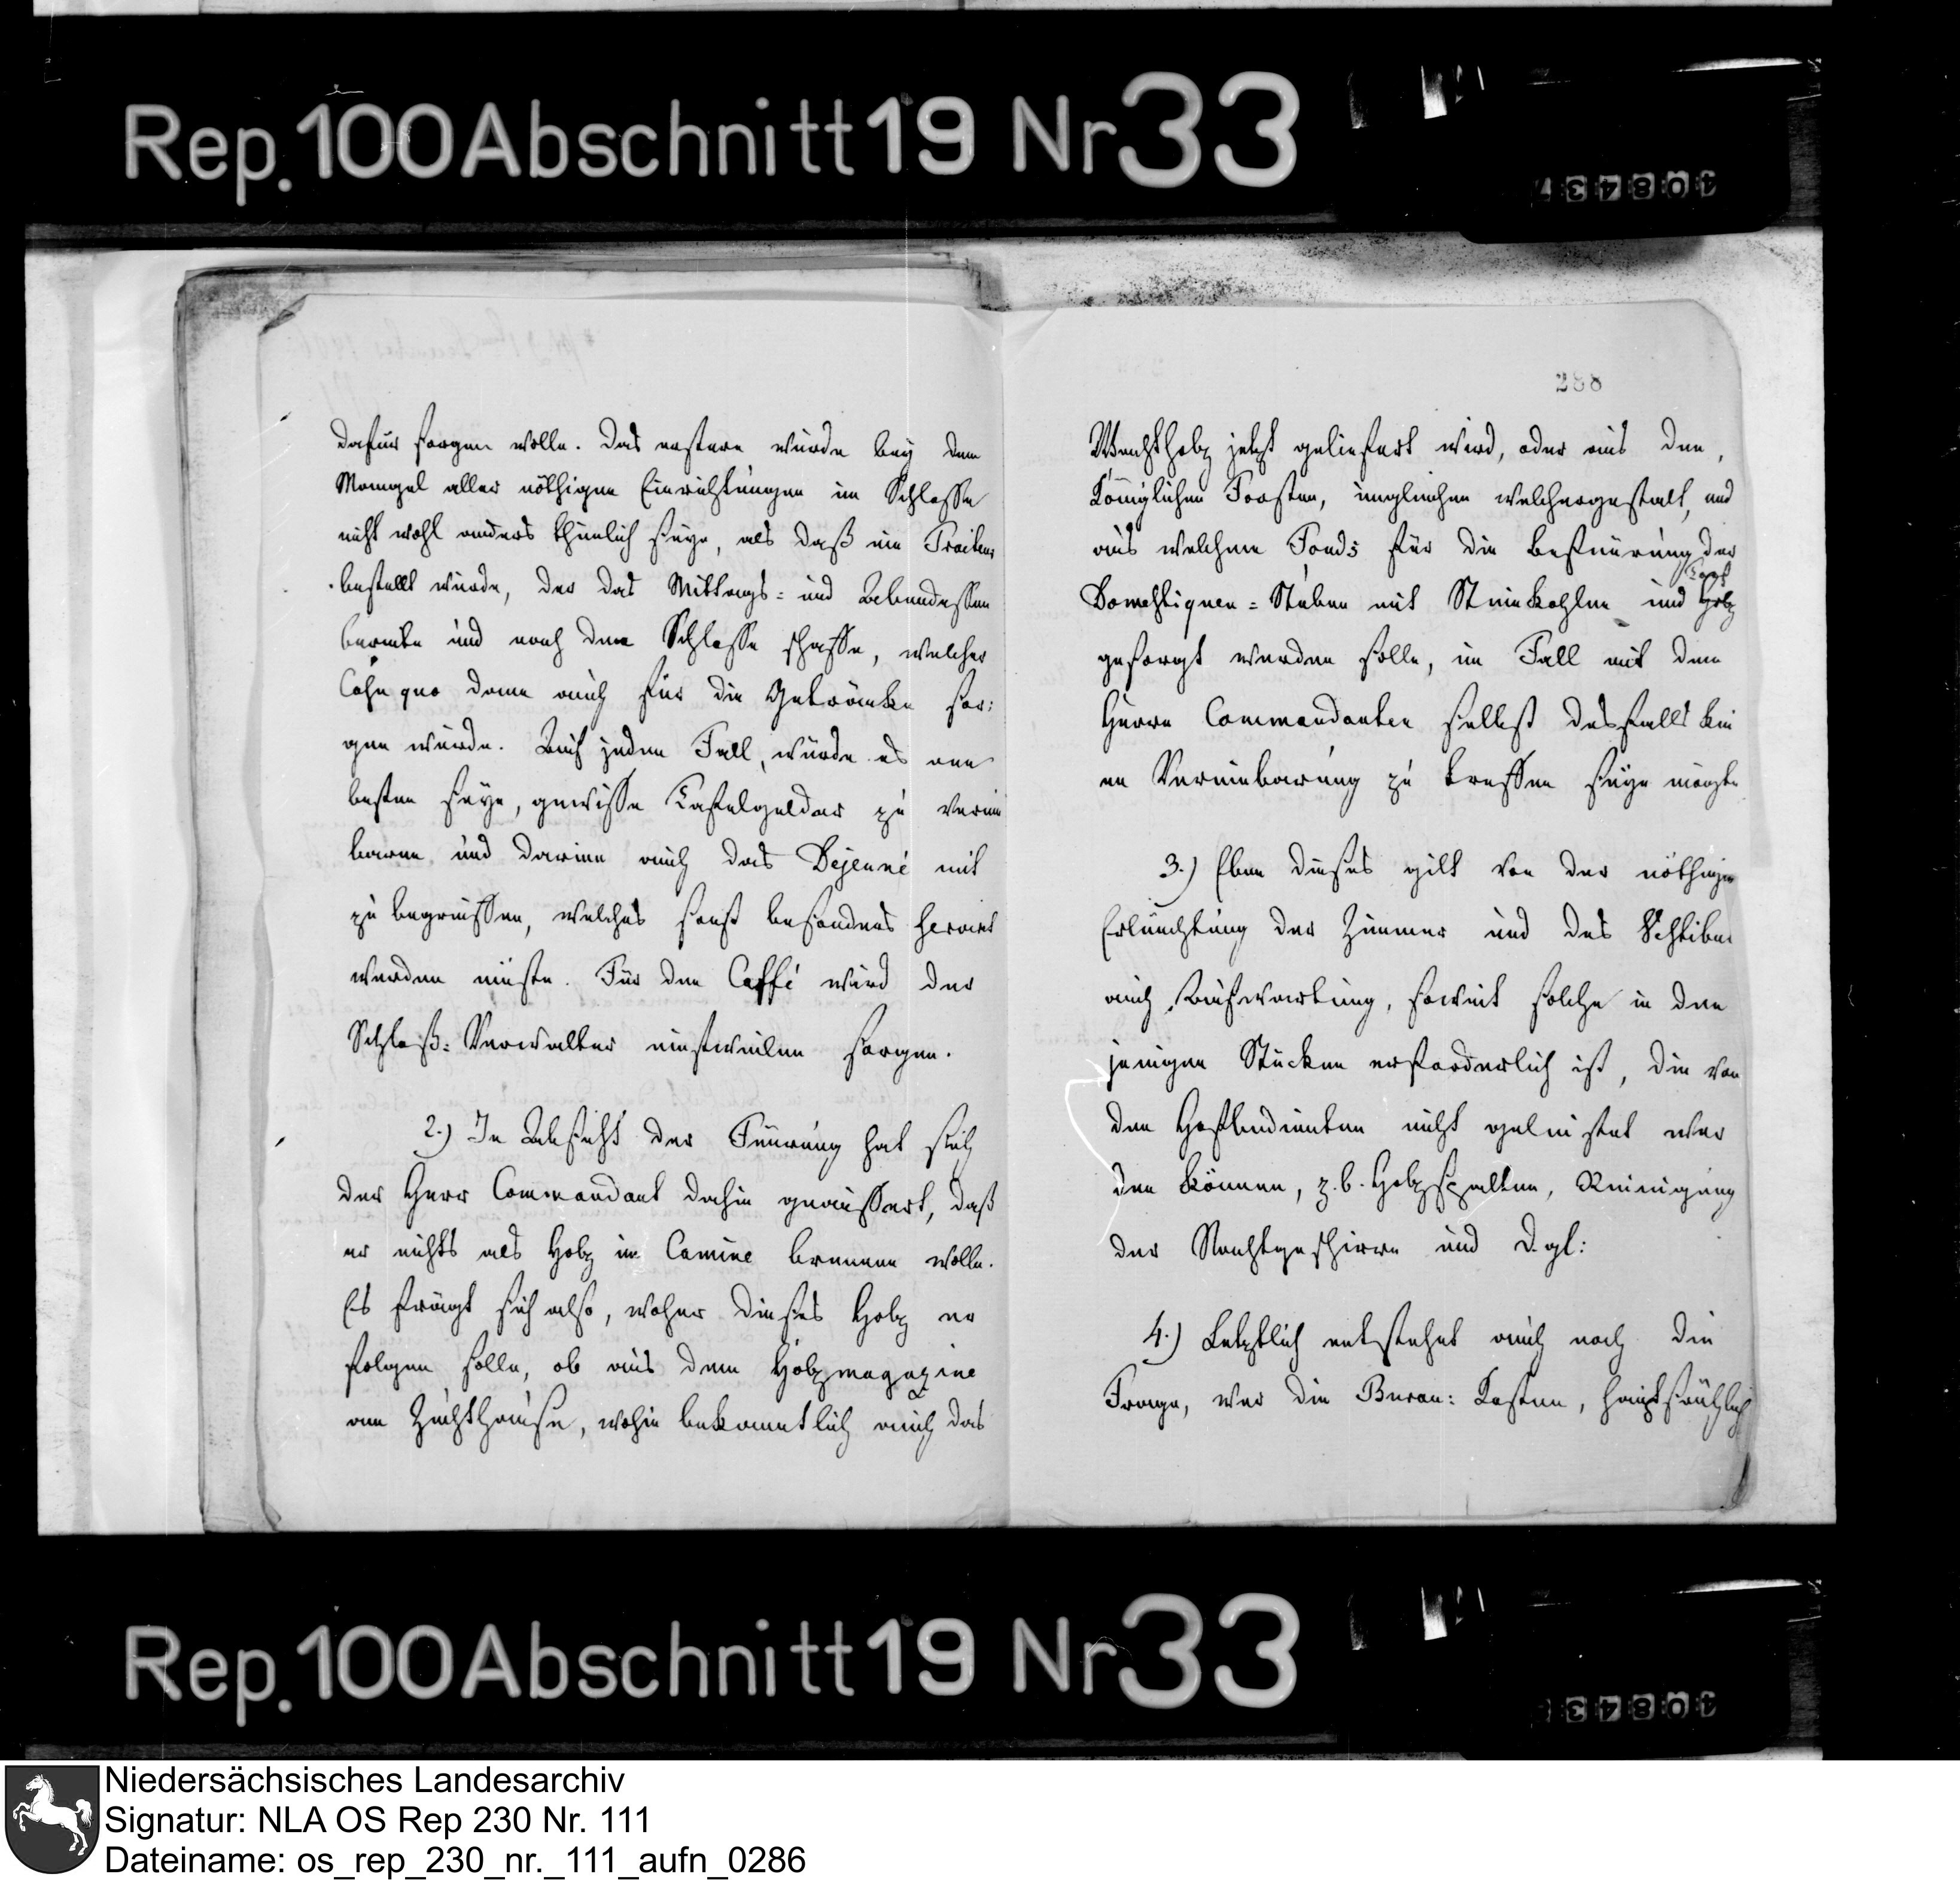 Rep. 100 Abschnitt 19 Nr 33
dafür sorgen wolle. Das erstere würde bey dem
Mangel aller nöthigen Einrichtungen im Schlosse
nicht wohl anders thunlich seyn, als daß ein Traiteur
bestellt würde, der das Mittags- und Abendessen
bereite und nach dem Schlosse schaffe, welcher
Casu quo dann auch für die Getränke sor:
gen würde. Auf jeden Fall, würde es am
besten seyn, gewisse Tafelgelder zu verein
baren und darinn auch das Dejeuné mit
zu begreiffen, welches sonst besonders
werden müste. Für den Caffé wird der
Schloß: Verwalter einstweilen sorgen.
2.) In Absicht der Feurung hat sich
der Herr Commandant dahin geäussert, daß
er nichts als Holz im Camine brennen wolle.
Es frägt sich also, woher dieses Holz er
folgen solle, ob aus dem Holzmagazine
am Zuchthause, wohin bekanntlich auch das
288
Wachtholz jetzt geliefert wird, oder aus den
Königlichen Forsten, imgleichen welchergestalt, und
aus welchem Fonds für die Befeurung der
Domestiquen-Stuben mit Steinkohlen und Torf
Holz
gesorgt werden solle, im Fall mit dem
Herrn Commandanten selbst desfalls kei
ne Vereinbarung zu treffen seyn mögte
3.) Eben dieses gilt von der nöthigen
Erleuchtung der Zimmer und des
auch Aufwartung, soweit solche in den
jenigen Stücken erforderlich ist, die von
den Hofbedienten nicht geleistet wer
den können, z. b. Holzspalten, Reinigung
der Nachtgeschirre und d. gl:
4.) Letztlich entstehet auch noch die
Frage, wer die Bureau: Kosten, hauptsächlich
Rep. 100 Abschnitt 19 Nr 33
Niedersächsisches Landesarchiv
Signatur: NLA OS Rep 230 Nr. 111
Dateiname: os_rep_230_nr._111_aufn_0286